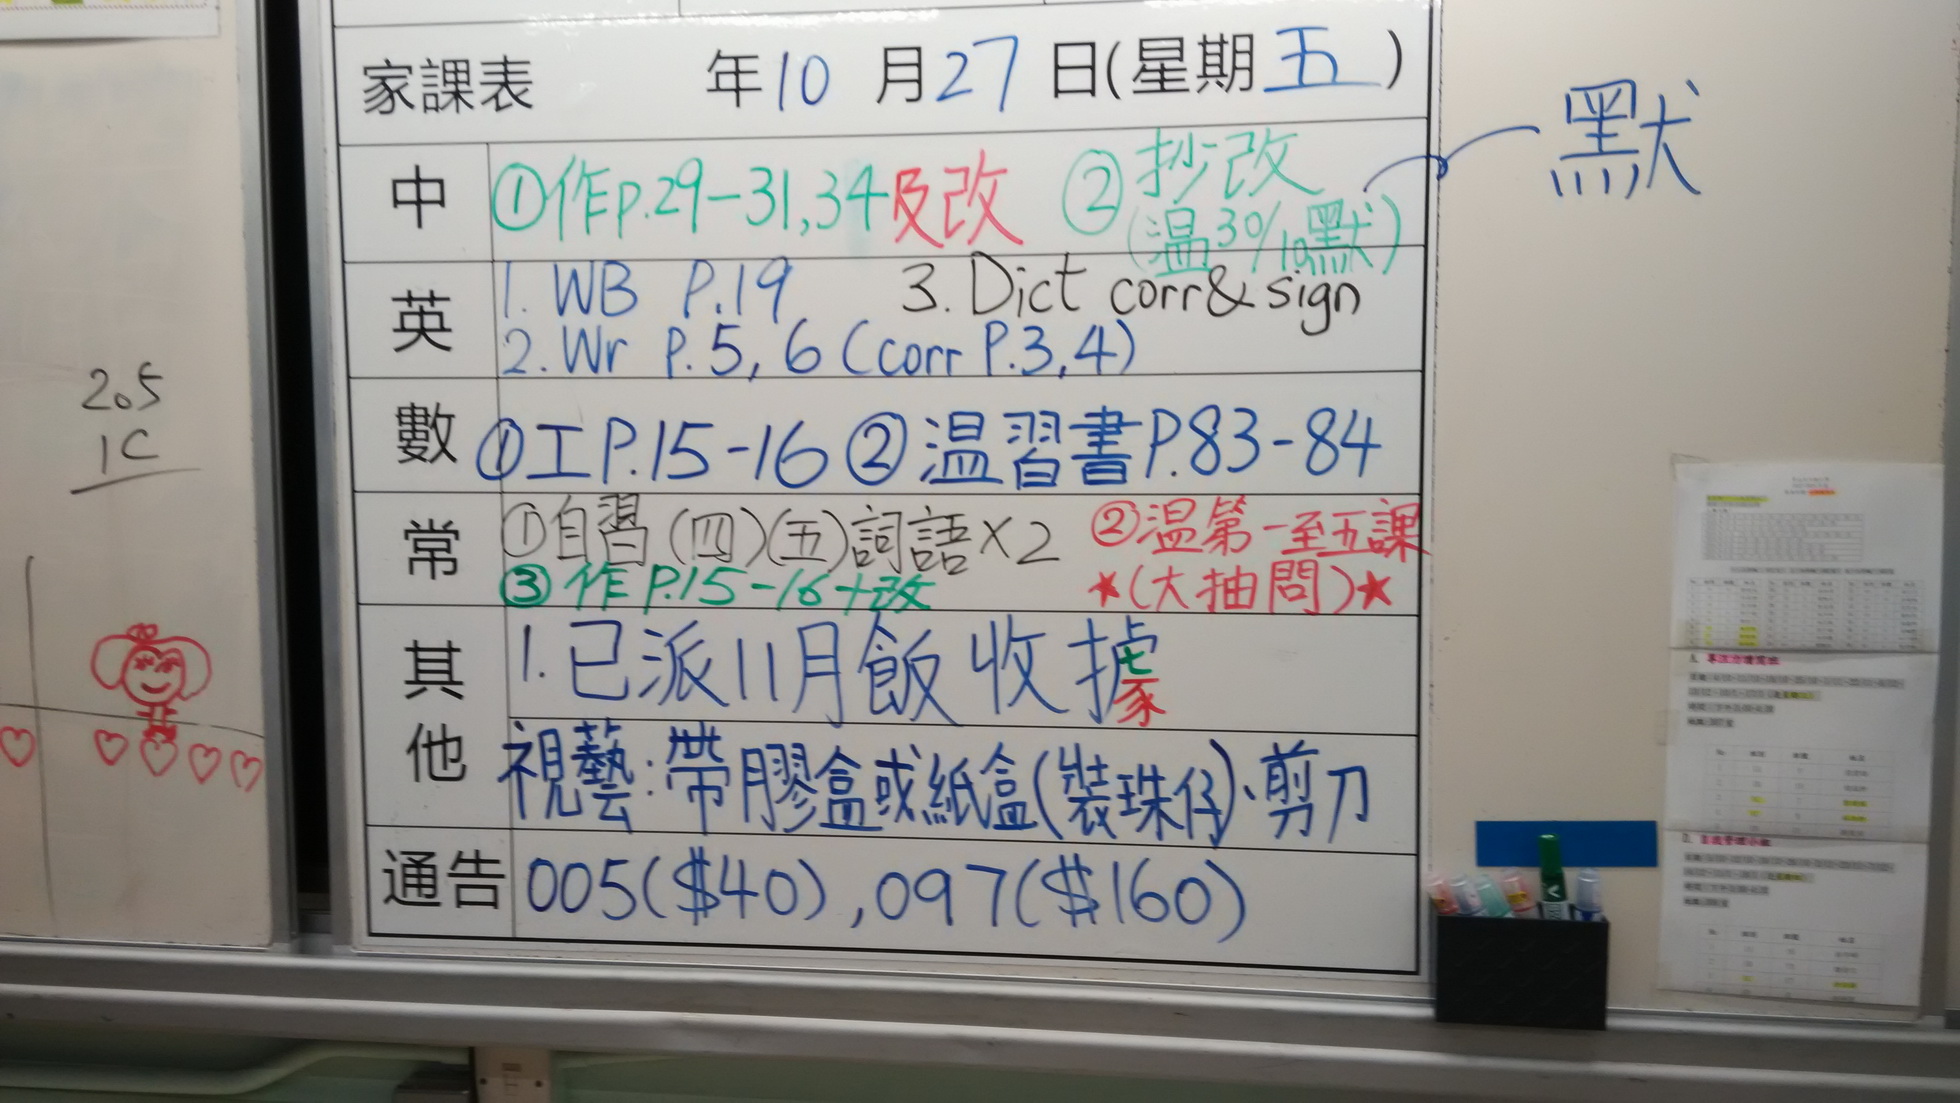 家課表 年10月27日(星期五)
默
中 ①作P.29-31,34及改 ②抄改
(温30/10默)
英 1. WB P.19 3. Dict corr& sign
2. Wr P.5, 6 (corr P.3,4)
數 ①工P.15-16 ②温習書P.83-84
常 ①自習(四)(五)詞語×2 ②温第一至五課
③作P.15-16+改 ★(大抽問)★
其他 1. 已派11月飯收據
視藝:帶膠盒或紙盒(裝珠仔)、剪刀
通告 005($40),097($160)
2.5
1C